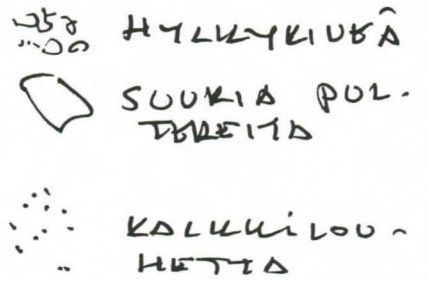 HYLKYKIVEÄ
SUURIA PUL-
TEREITA
KALKKILOU-
HETTA